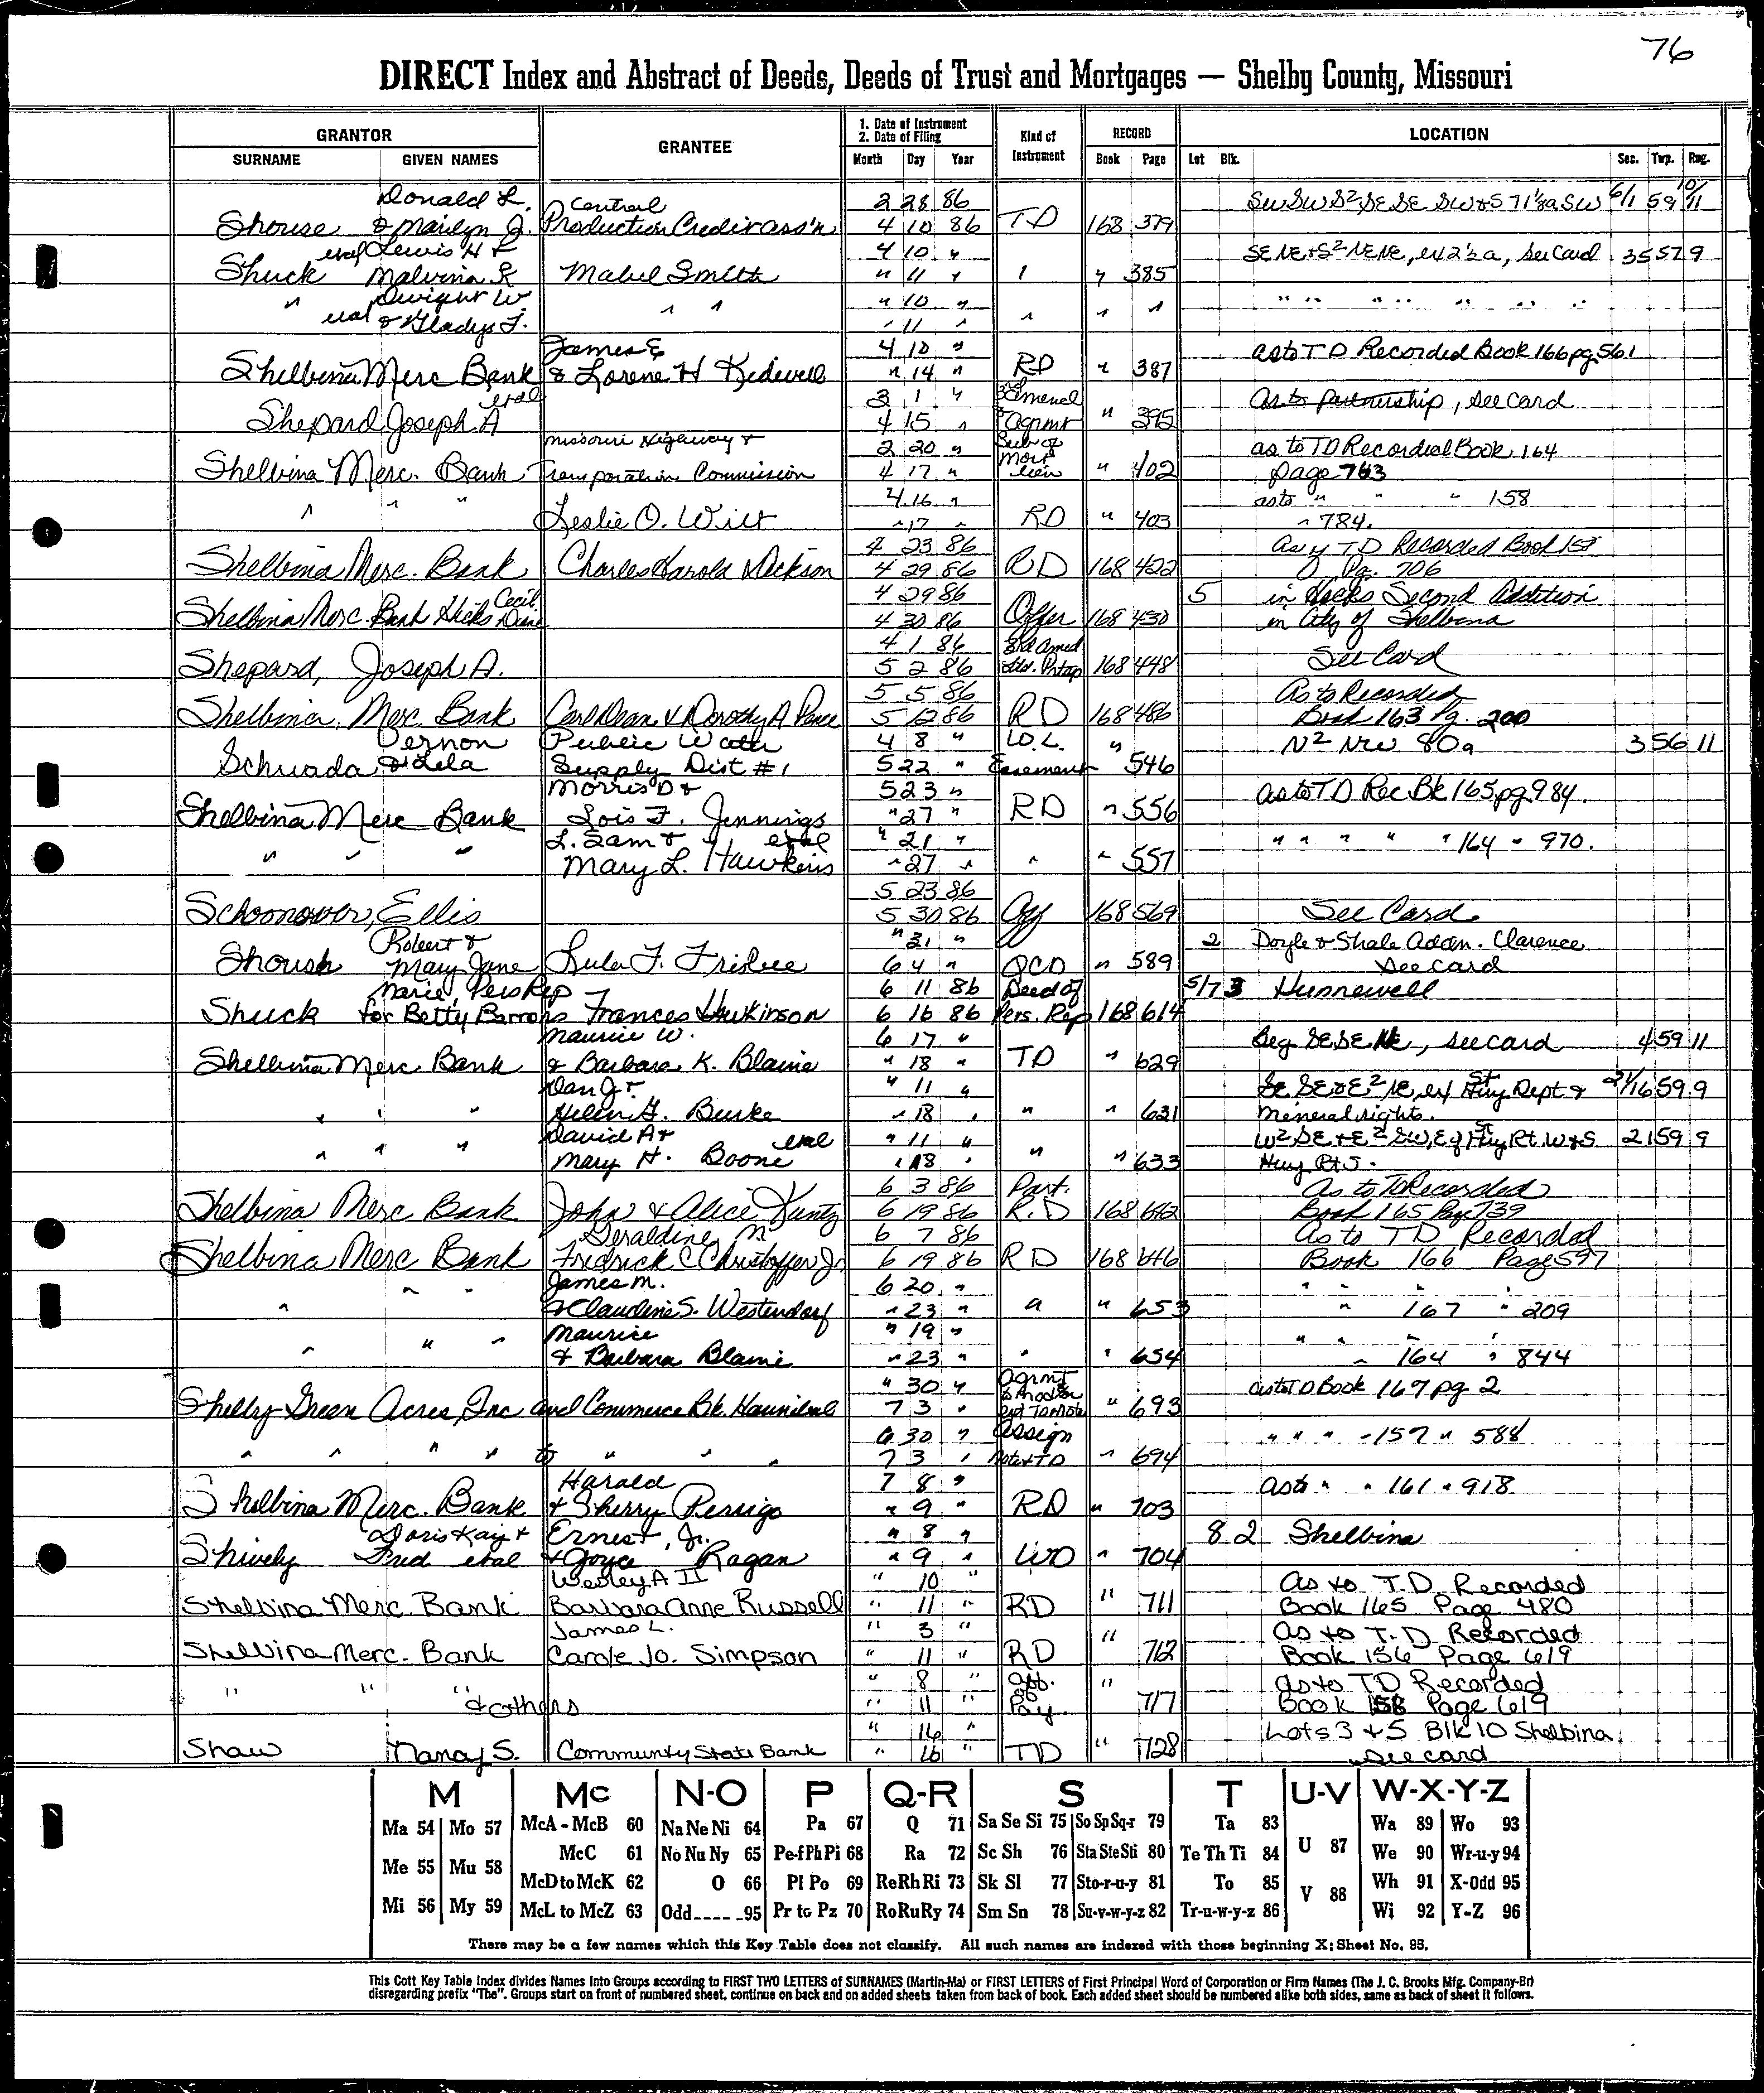 76
DIRECT Index and Abstract of Deeds, Deeds of Trust and Mortgages — Shelby County, Missouri
GRANTOR GRANTEE 1. Date of Instrument 2. Date of Filing Kind of Instrument RECORD LOCATION
SURNAME GIVEN NAMES Month Day Year Book Page Lot Blk. Sec. Twp. Rng.
Donald L. Central 2 28 86 SW SW S² SE SE SW & S 71 1/8 a SW 6/1 59 10/11
Shouse & Marilyn J. Production Credit Ass'n 4 10 86 TD 168 379
etal Lewis H & 4 10 " SE NE & S² NE NE, ex 2½ a, see Card 35 57 9
Shuck Malvina K Mabel Smith " 11 " 1 " 385
" Dwight W. " 10 " " " " " " " "
etal & Gladys F. " " " 11 " " " "
James E 4 10 " as to TD Recorded Book 166 pg 561
Shelbina Merc Bank & Lorene H Kidwell " 14 " RD " 387
etal 3 1 " amend as to partnership, see card
Shepard Joseph A 4 15 " Agrmt " 395
Missouri Highway & 2 20 " as to TD Recorded Book 164
Shelbina Merc. Bank Transportation Commission 4 17 " lien " 402 page 763
" " " 4 16 " as to " " " 158
Leslie O. Wilt " 17 " RD " 403 " 784.
4 23 86 TD Recorded Book
Shelbina Merc. Bank Charles Harold Dickson 4 29 86 RD 168 422 Pg. 706
Cecil 4 29 86 5 in Hicks Second Addition
Shelbina Merc. Bank Hicks 4 30 86 Offer 168 430 in City of Shelbina
4 1 86 3rd Amed
Shepard, Joseph A. 5 2 86 Ltd. Prtsp 168 448 See Card
5 5 86 As to Recorded
Shelbina, Merc. Bank Carl Dean & Dorothy A 5 12 86 RD 168 486 Book 163 Pg. 200
Vernon Public Water 4 8 " W.L. " N² NW 80a 3 56 11
Schwada & Lela Supply Dist #1 5 22 " Easement 546
Morris D & 5 23 " as to TD Rec Bk 165 pg 984.
Shelbina Merc Bank Lois F. Jennings " 27 " RD " 556
L. Sam & etal " 21 " " " " " " 164 " 970.
" " " Mary L. Hawkins " 27 " " " 557
5 23 86
Schoonover, Ellis 5 30 86 Aff 168 569 See Card
Robert & " 21 " 2 Doyle & Shale Addn. Clarence
Shoush Mary Jane Lula F. Frisbee 6 4 " QCD " 589 see card
Marie, Pers Rep 6 11 86 Deed of 5/7 3 Hunnewell
Shuck for Betty Barrons Frances Hawkinson 6 16 86 Pers. Rep 168 614
Maurice W. 6 17 " Beg SE SE NE, see card 4 59 11
Shelbina Merc Bank & Barbara K. Blaine " 18 " TD " 629
Dan J & " 11 " SE SE & E² NE, ex St Hwy Dept & 21/16 59 9
" " " Helen G. Burke " 18 " " " 631 mineral rights.
David A & etal " 11 " W² SE & E² SW, Ex St Hwy Rt. W & S 21 59 9
" " " Mary H. Boone " 18 " " " 633 Hwy Rt S.
6 3 86 Part. As to TD Recorded
Shelbina Merc Bank John & Alice Kuntz 6 19 86 R.D 168 642 Book 165 Page 739
Geraldine M 6 7 86 As to TD Recorded
Shelbina Merc Bank Fredrick C Christoffer Jr 6 19 86 RD 168 646 Book 166 Page 597
James M. 6 20 " " " " "
" " " & Claudine S. Westendorf " 23 " " " 653 " 167 " 209
Maurice " 19 " " " " "
" " " & Barbara Blaine " 23 " " " 654 " 164 " 844
" 30 " Agrmt as to TD Book 167 pg 2
Shelby Green Acres, Inc and Commerce Bk. Hannibal 7 3 " " 693
6 30 " Assign " " " " 157 " 588
" " " " to " " " 7 3 " Note & TD " 694
Harold 7 8 " as to " " 161 " 918
Shelbina Merc. Bank & Sherry Perrigo " 9 " RD " 703
Doris Kay & Ernest, Jr. " 8 " 8 2 Shelbina
Shively Fred etal & Joyce Ragan " 9 " WD " 704
Wesley A II " 10 " As to T.D. Recorded
Shelbina Merc. Bank Barbara Anne Russell " 11 " RD " 711 Book 165 Page 480
James L. " 3 " As to T.D Recorded
Shelbina Merc. Bank Carole Jo. Simpson " 11 " RD " 712 Book 156 Page 619
" 8 " Aff. as to TD Recorded
" " " & others " 11 " Pay " 717 Book 158 Page 619
" 16 " Lots 3 & 5 Blk 10 Shelbina
Shaw Nancy S. Community State Bank " 16 " TD " 728 see card
M Mc N-O P Q-R S T U-V W-X-Y-Z
Ma 54 Mo 57 McA - McB 60 Na Ne Ni 64 Pa 67 Q 71 Sa Se Si 75 So Sp Sq-r 79 Ta 83 Wa 89 Wo 93
McC 61 No Nu Ny 65 Pe-f Ph Pi 68 Ra 72 Sc Sh 76 Sta Ste Sti 80 Te Th Ti 84 U 87 We 90 Wr-u-y 94
Me 55 Mu 58 McD to McK 62 O 66 Pl Po 69 Re Rh Ri 73 Sk Sl 77 Sto-r-u-y 81 To 85 V 88 Wh 91 X-Odd 95
Mi 56 My 59 McL to McZ 63 Odd---- -95 Pr to Pz 70 Ro Ru Ry 74 Sm Sn 78 Su-v-w-y-z 82 Tr-u-w-y-z 86 Wi 92 Y-Z 96
There may be a few names which this Key Table does not classify. All such names are indexed with those beginning X; Sheet No. 95.
This Cott Key Table Index divides Names Into Groups according to FIRST TWO LETTERS of SURNAMES (Martin-Ma) or FIRST LETTERS of First Principal Word of Corporation or Firm Names (The J. C. Brooks Mfg. Company-Br)
disregarding prefix "The". Groups start on front of numbered sheet, continue on back and on added sheets taken from back of book. Each added sheet should be numbered alike both sides, same as back of sheet it follows.